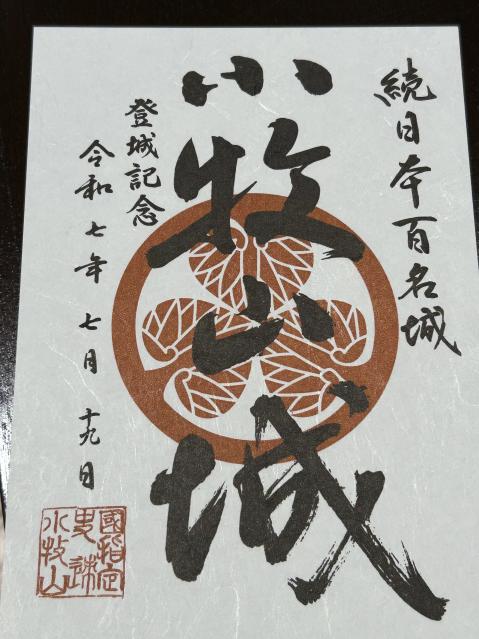 続日本百名城
小牧山城
登城記念
令和七年七月十九日
國指定
史跡
小牧山